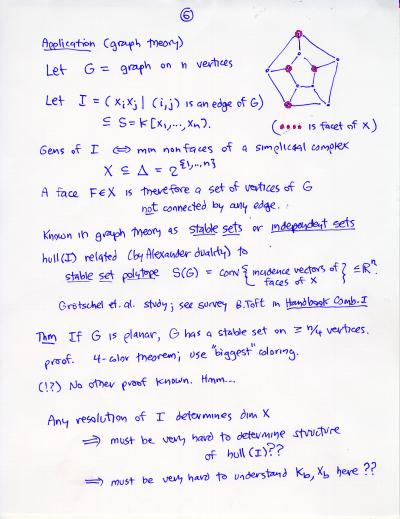 ⑥
Application (graph theory)
Let G = graph on n vertices
Let I = (xᵢxⱼ | (i,j) is an edge of G)
⊆ S = k[x₁,...,xₙ).
(•••• is facet of X)
Gens of I ⟺ min nonfaces of a simplicial complex
X ⊆ Δ = 2^{1,...,n}
A face F∈X is therefore a set of vertices of G
not connected by any edge.
Known in graph theory as stable sets or independent sets
hull(I) related (by Alexander duality) to
stable set polytope S(G) = conv{incidence vectors of faces of X} ⊆ ℝⁿ.
Grötschel et. al. study; see survey B.Toft in Handbook Comb. I
Thm If G is planar, G has a stable set on ≥ n/4 vertices.
proof. 4-color theorem; use "biggest" coloring.
(!?) No other proof known. Hmm...
Any resolution of I determines dim X
⟹ must be very hard to determine structure
of hull(I)??
⟹ must be very hard to understand K_b, X_b here ??